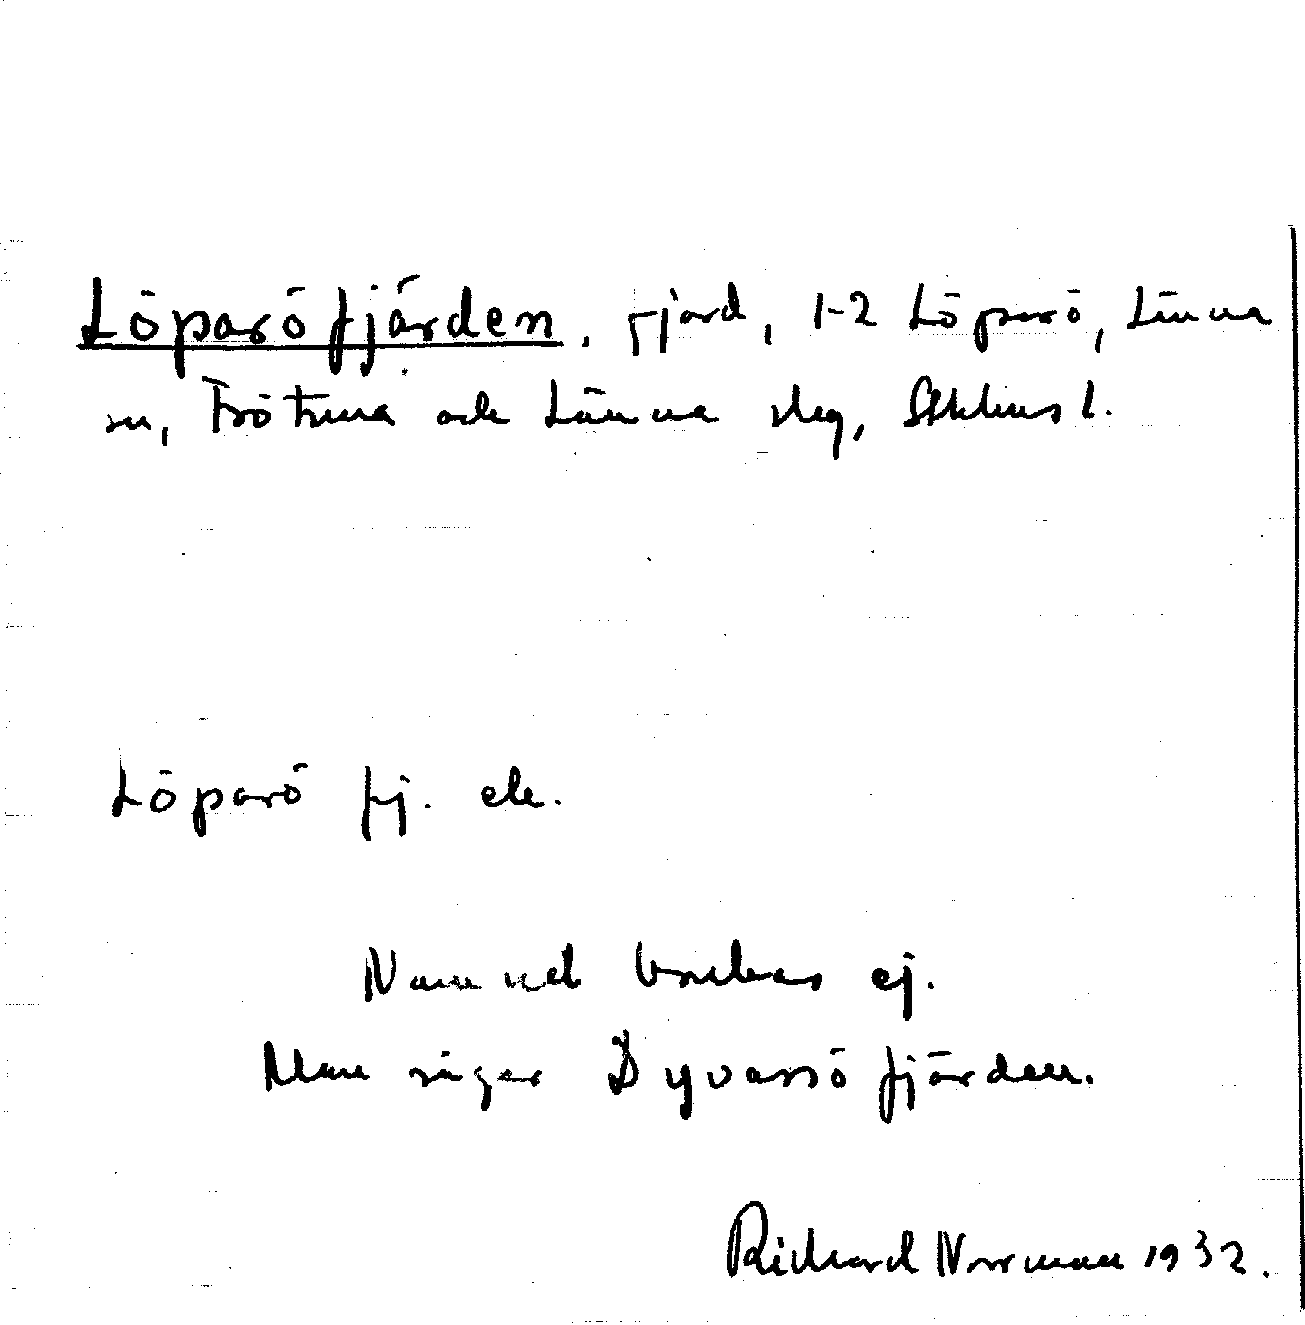 Löparöfjärden. fjärd, 1-2 Löparö, Länna
sn, Frötuna och Länna slag, Sthlms l.
Löparö fj. ek.
Namnet brukas ej.
Man säger Dyvassöfjärden.
Richard Norrman 1932.